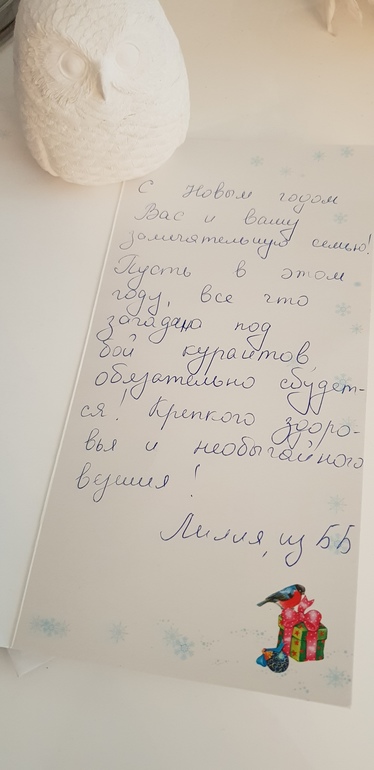 С Новым годом
Вас и вашу
замечательную семью!
Пусть в этом
году, все что
загадаю под
бой курантов
обязательно сбудет-
ся! Крепкого здоро-
вья и необычайного
везения!
Лилия, из ББ